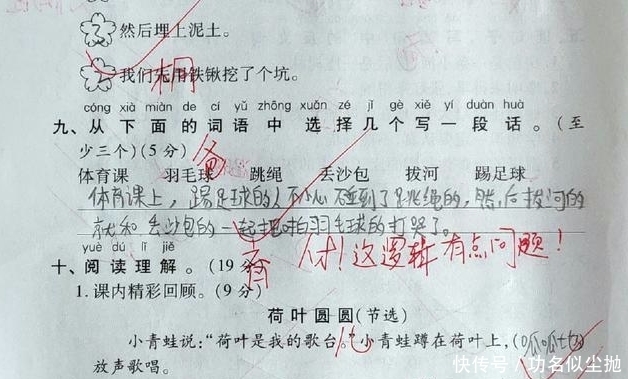 然后埋上泥土。
我们先用铁锹挖了个坑。
桐
cóng xià miàn de cí yǔ zhōng xuǎn zé jǐ gè xiě yí duàn huà
九、从下面的词语中选择几个写一段话。(至
少三个)(5分)
体育课 羽毛球 跳绳 丢沙包 拔河 踢足球
体育课上,踢足球的人不小心碰到了跳绳的,然后拔河的
就和丢沙包的一起把拍羽毛球的打哭了。
人才!这逻辑有点问题!
yuè dú lǐ jiě
十、阅读理解。(19分)
1.课内精彩回顾。(9分)
荷叶圆圆(节选)
小青蛙说:“荷叶是我的歌台。”小青蛙蹲在荷叶上,(呱呱地)
放声歌唱。
快传号/功名似尘抛